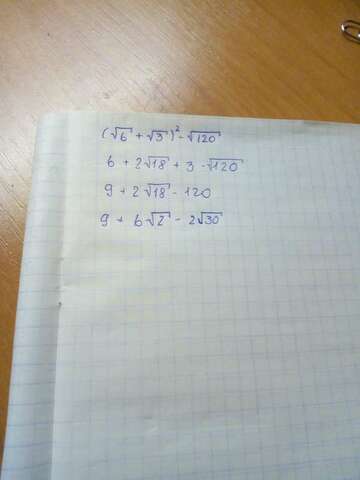 (√6 + √3)² - √120
6 + 2√18 + 3 - √120
9 + 2√18 - 120
9 + 6√2 - 2√30